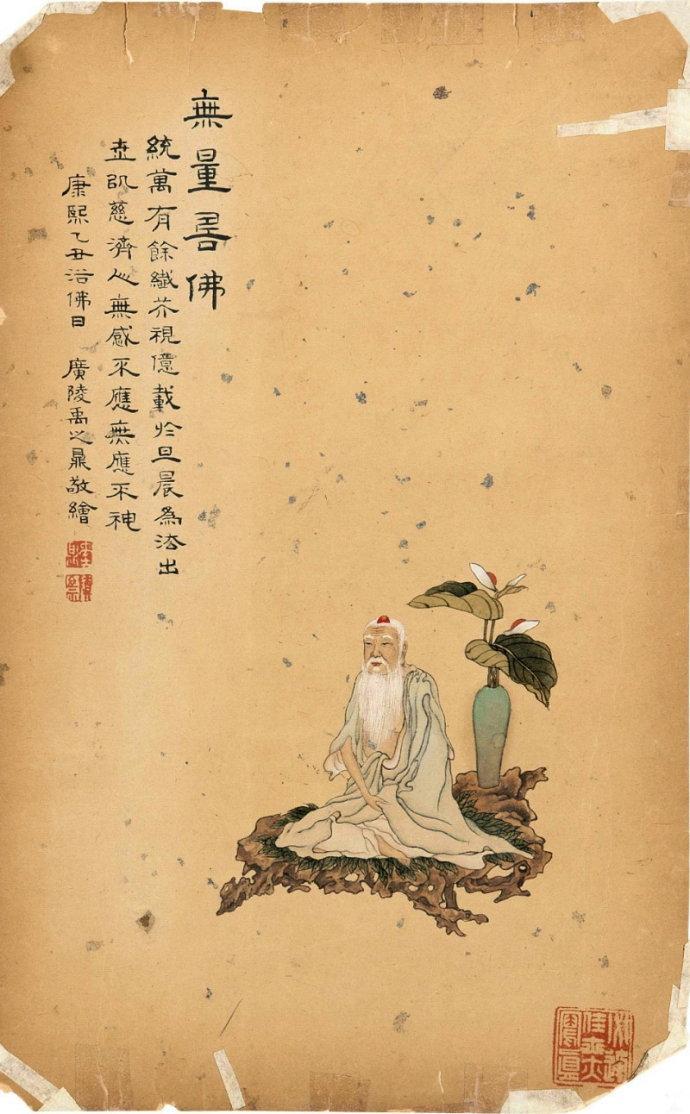 無量壽佛
統萬有餘纖芥視億載於旦晨為法出
世以慈濟心無感不應無應不神
康熙乙丑浴佛日 廣陵禹之鼎敬繪